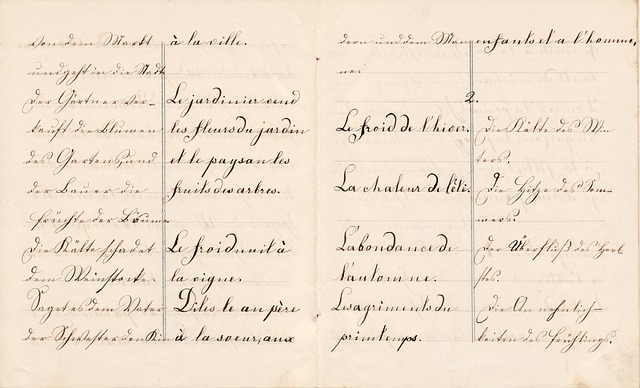 von dem Markt
und geht in die Stadt
Der Gärtner ver-
kauft die Blumen
des Gartens, und
der Bauer die
früchte der Bäume
Die Kälte schadet
dem Weinstocke
Saget es dem Vater
der Schwester den Kin
à la ville.
Le jardinier vend
les fleurs du jardin
et le paysan les
fruits des arbres.
Le froid nuit à
la vigne.
Dites le au père
à la soeur, aux
dern und dem Man
ne.
2.
Le froid de l'hiver.
La chaleur de l'été.
L'abondance de
l'automne.
Les agriments du
printemps.
enfants et a l'homme,
Die Kälte des Win
ters.
Die Hitze des Som-
mers.
Der Überfluß des Herb
stes.
Die Annehmlich-
keiten des Frühlings.